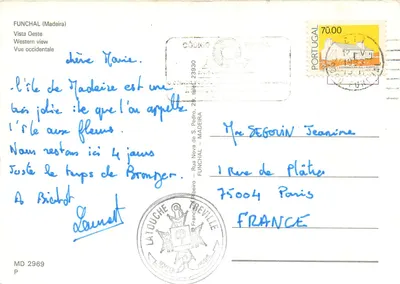 FUNCHAL (Madeira)
Vista Oeste
Western view
Vue occidentale
chère Mamie.
L'île de Madeire est une
très jolie île que l'on appelle
l'île aux fleurs.
Nous restons ici 4 jours
Juste le temps de Bronzer.
A Bientôt
Laurent
MD 2969
P
Rua Nova de S. Pedro
FUNCHAL - MADEIRA
PORTUGAL
70.00
LATOUCHE TREVILLE
Mme SEGOUIN Jeanine
1 Rue de Plâtre
75004 Paris
FRANCE